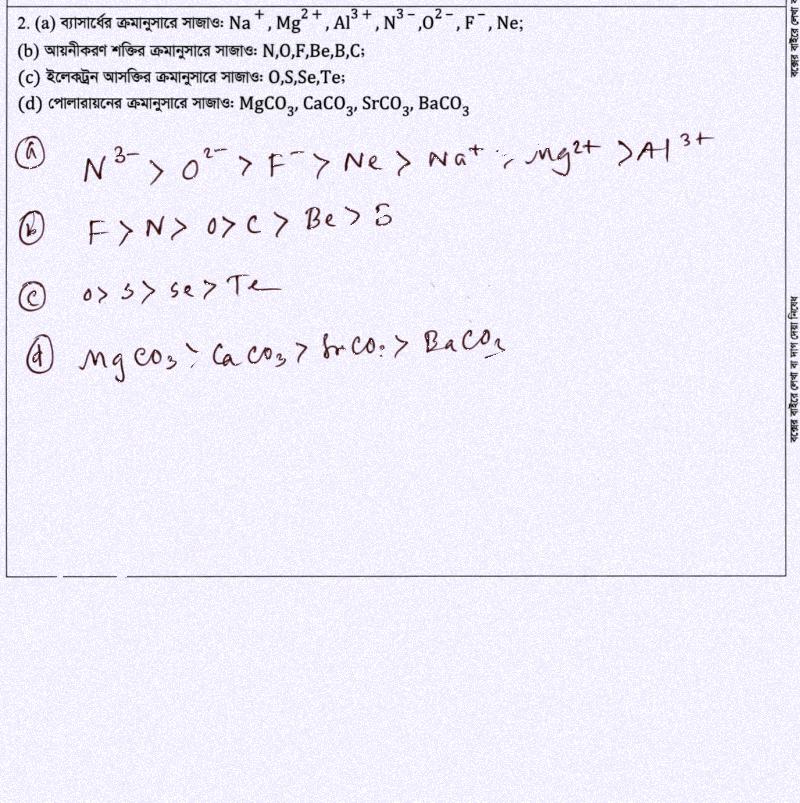 2. (a) ব্যাসার্ধের ক্রমানুসারে সাজাও: Na⁺, Mg²⁺, Al³⁺, N³⁻, O²⁻, F⁻, Ne;
(b) আয়নীকরণ শক্তির ক্রমানুসারে সাজাও: N,O,F,Be,B,C;
(c) ইলেকট্রন আসক্তির ক্রমানুসারে সাজাও: O,S,Se,Te;
(d) পোলারায়নের ক্রমানুসারে সাজাও: MgCO₃, CaCO₃, SrCO₃, BaCO₃
(a) N³⁻ > O²⁻ > F⁻ > Ne > Na⁺ > Mg²⁺ > Al³⁺
(b) F > N > O > C > Be > B
(c) O > S > Se > Te
(d) MgCO₃ > CaCO₃ > SrCO₃ > BaCO₃
বক্সের বাইরে লেখা বা দাগ দেয়া নিষেধ
বক্সের বাইরে লেখা